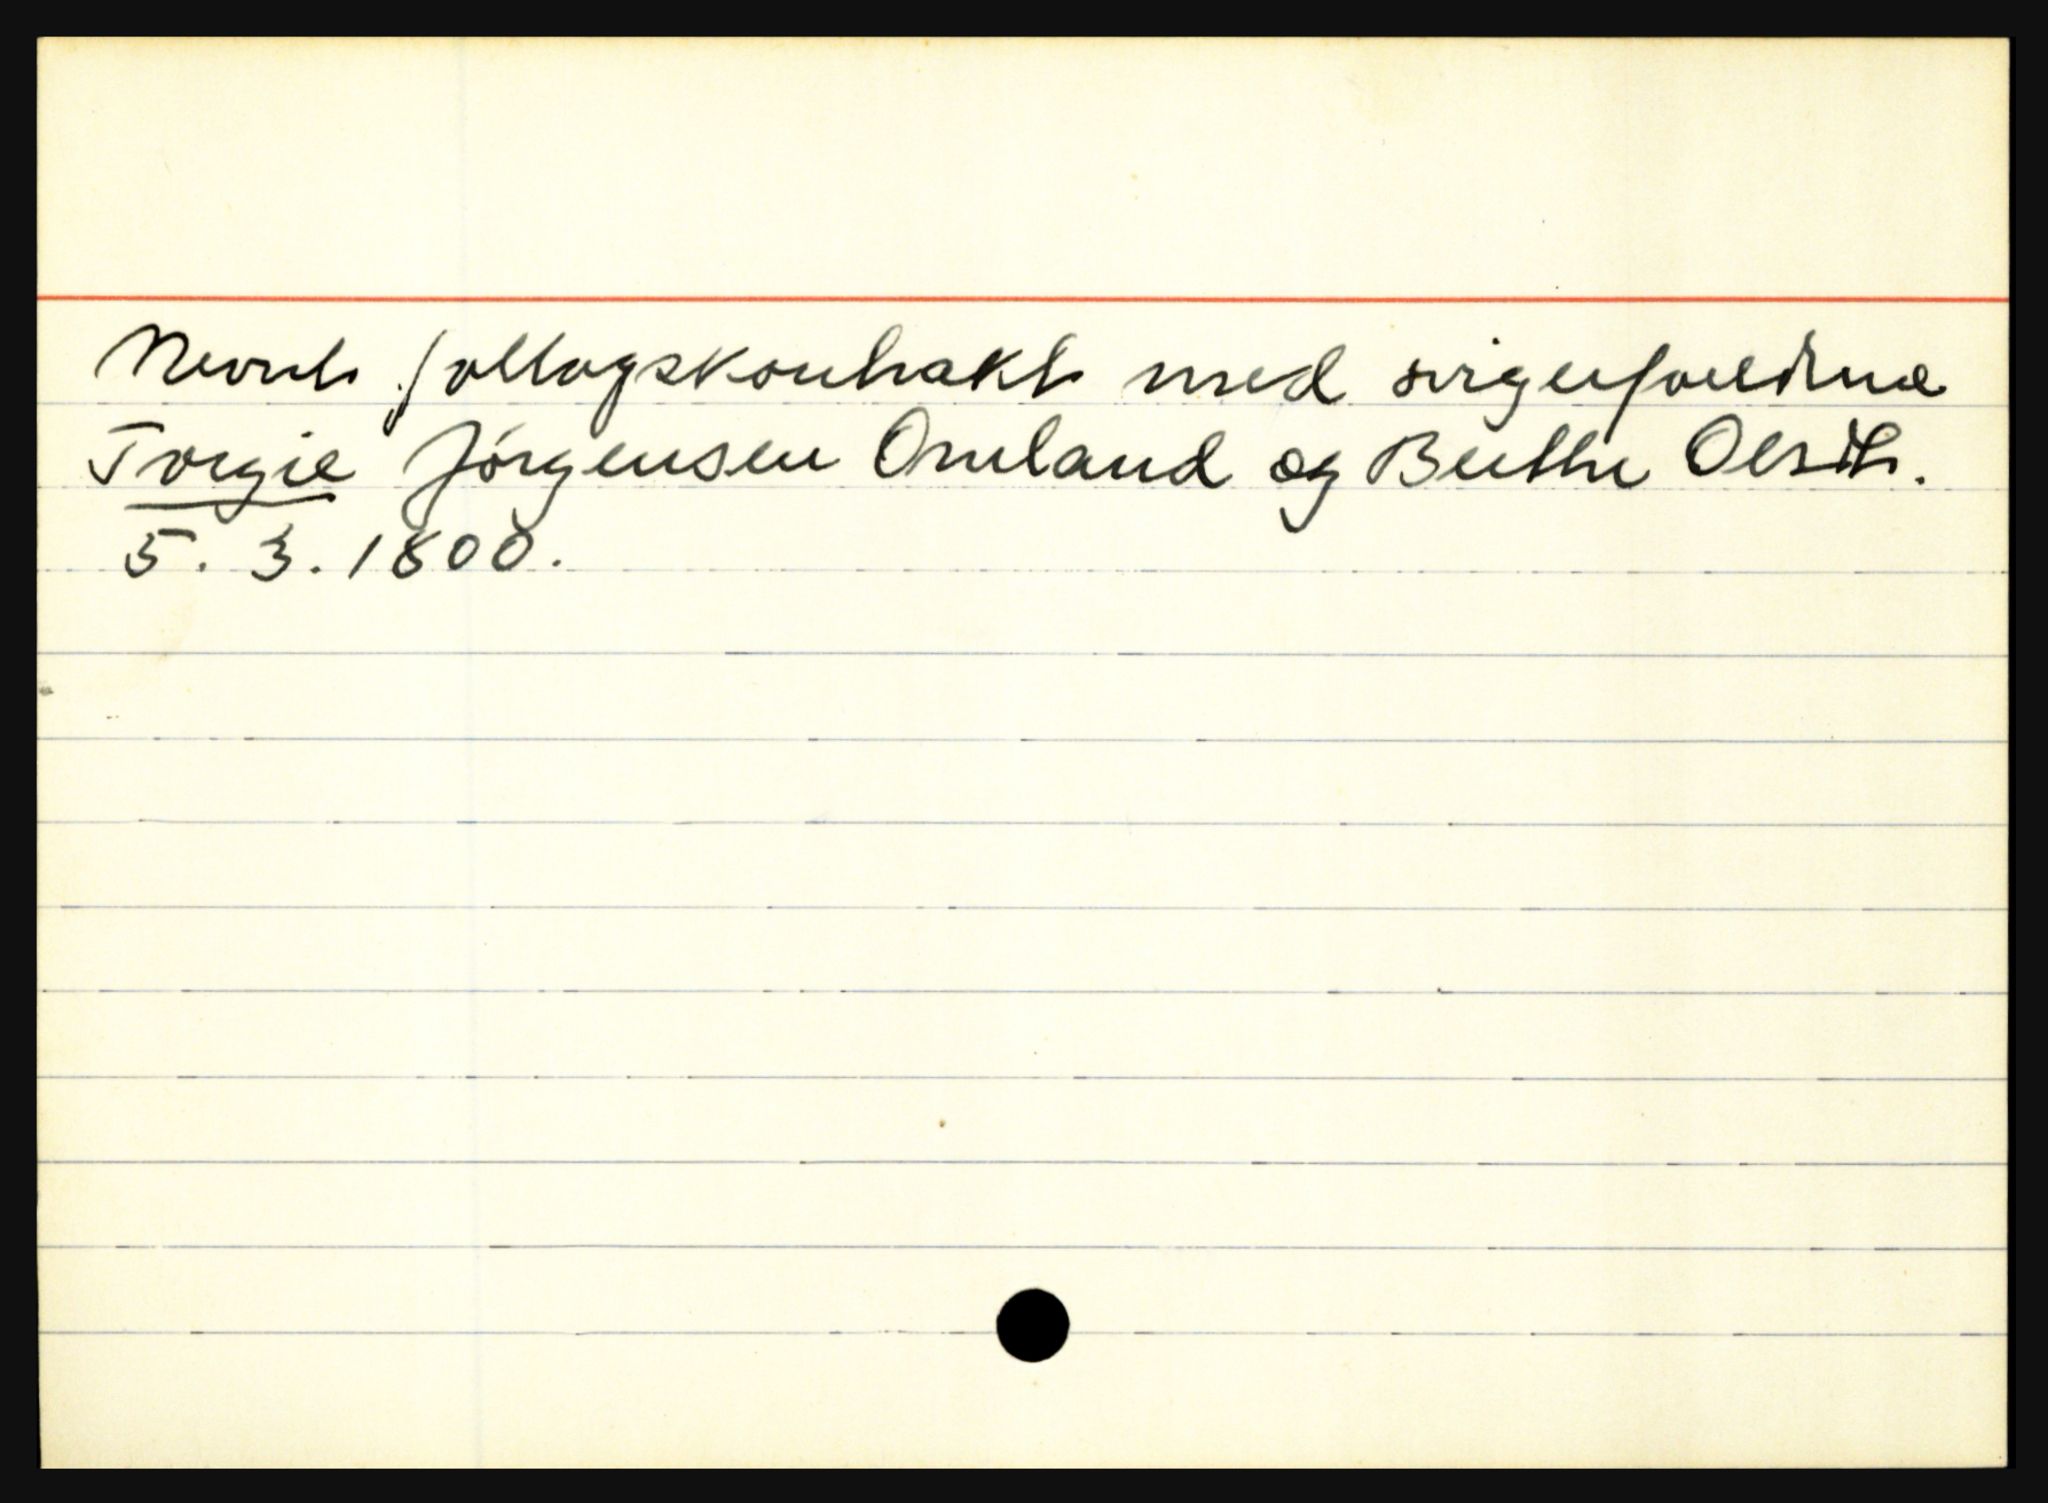 Nevnt follogskontrakt med svigerforeldrene
Torgie Jörgensen Omland og Berthe Olsdt.
5. 3. 1800.